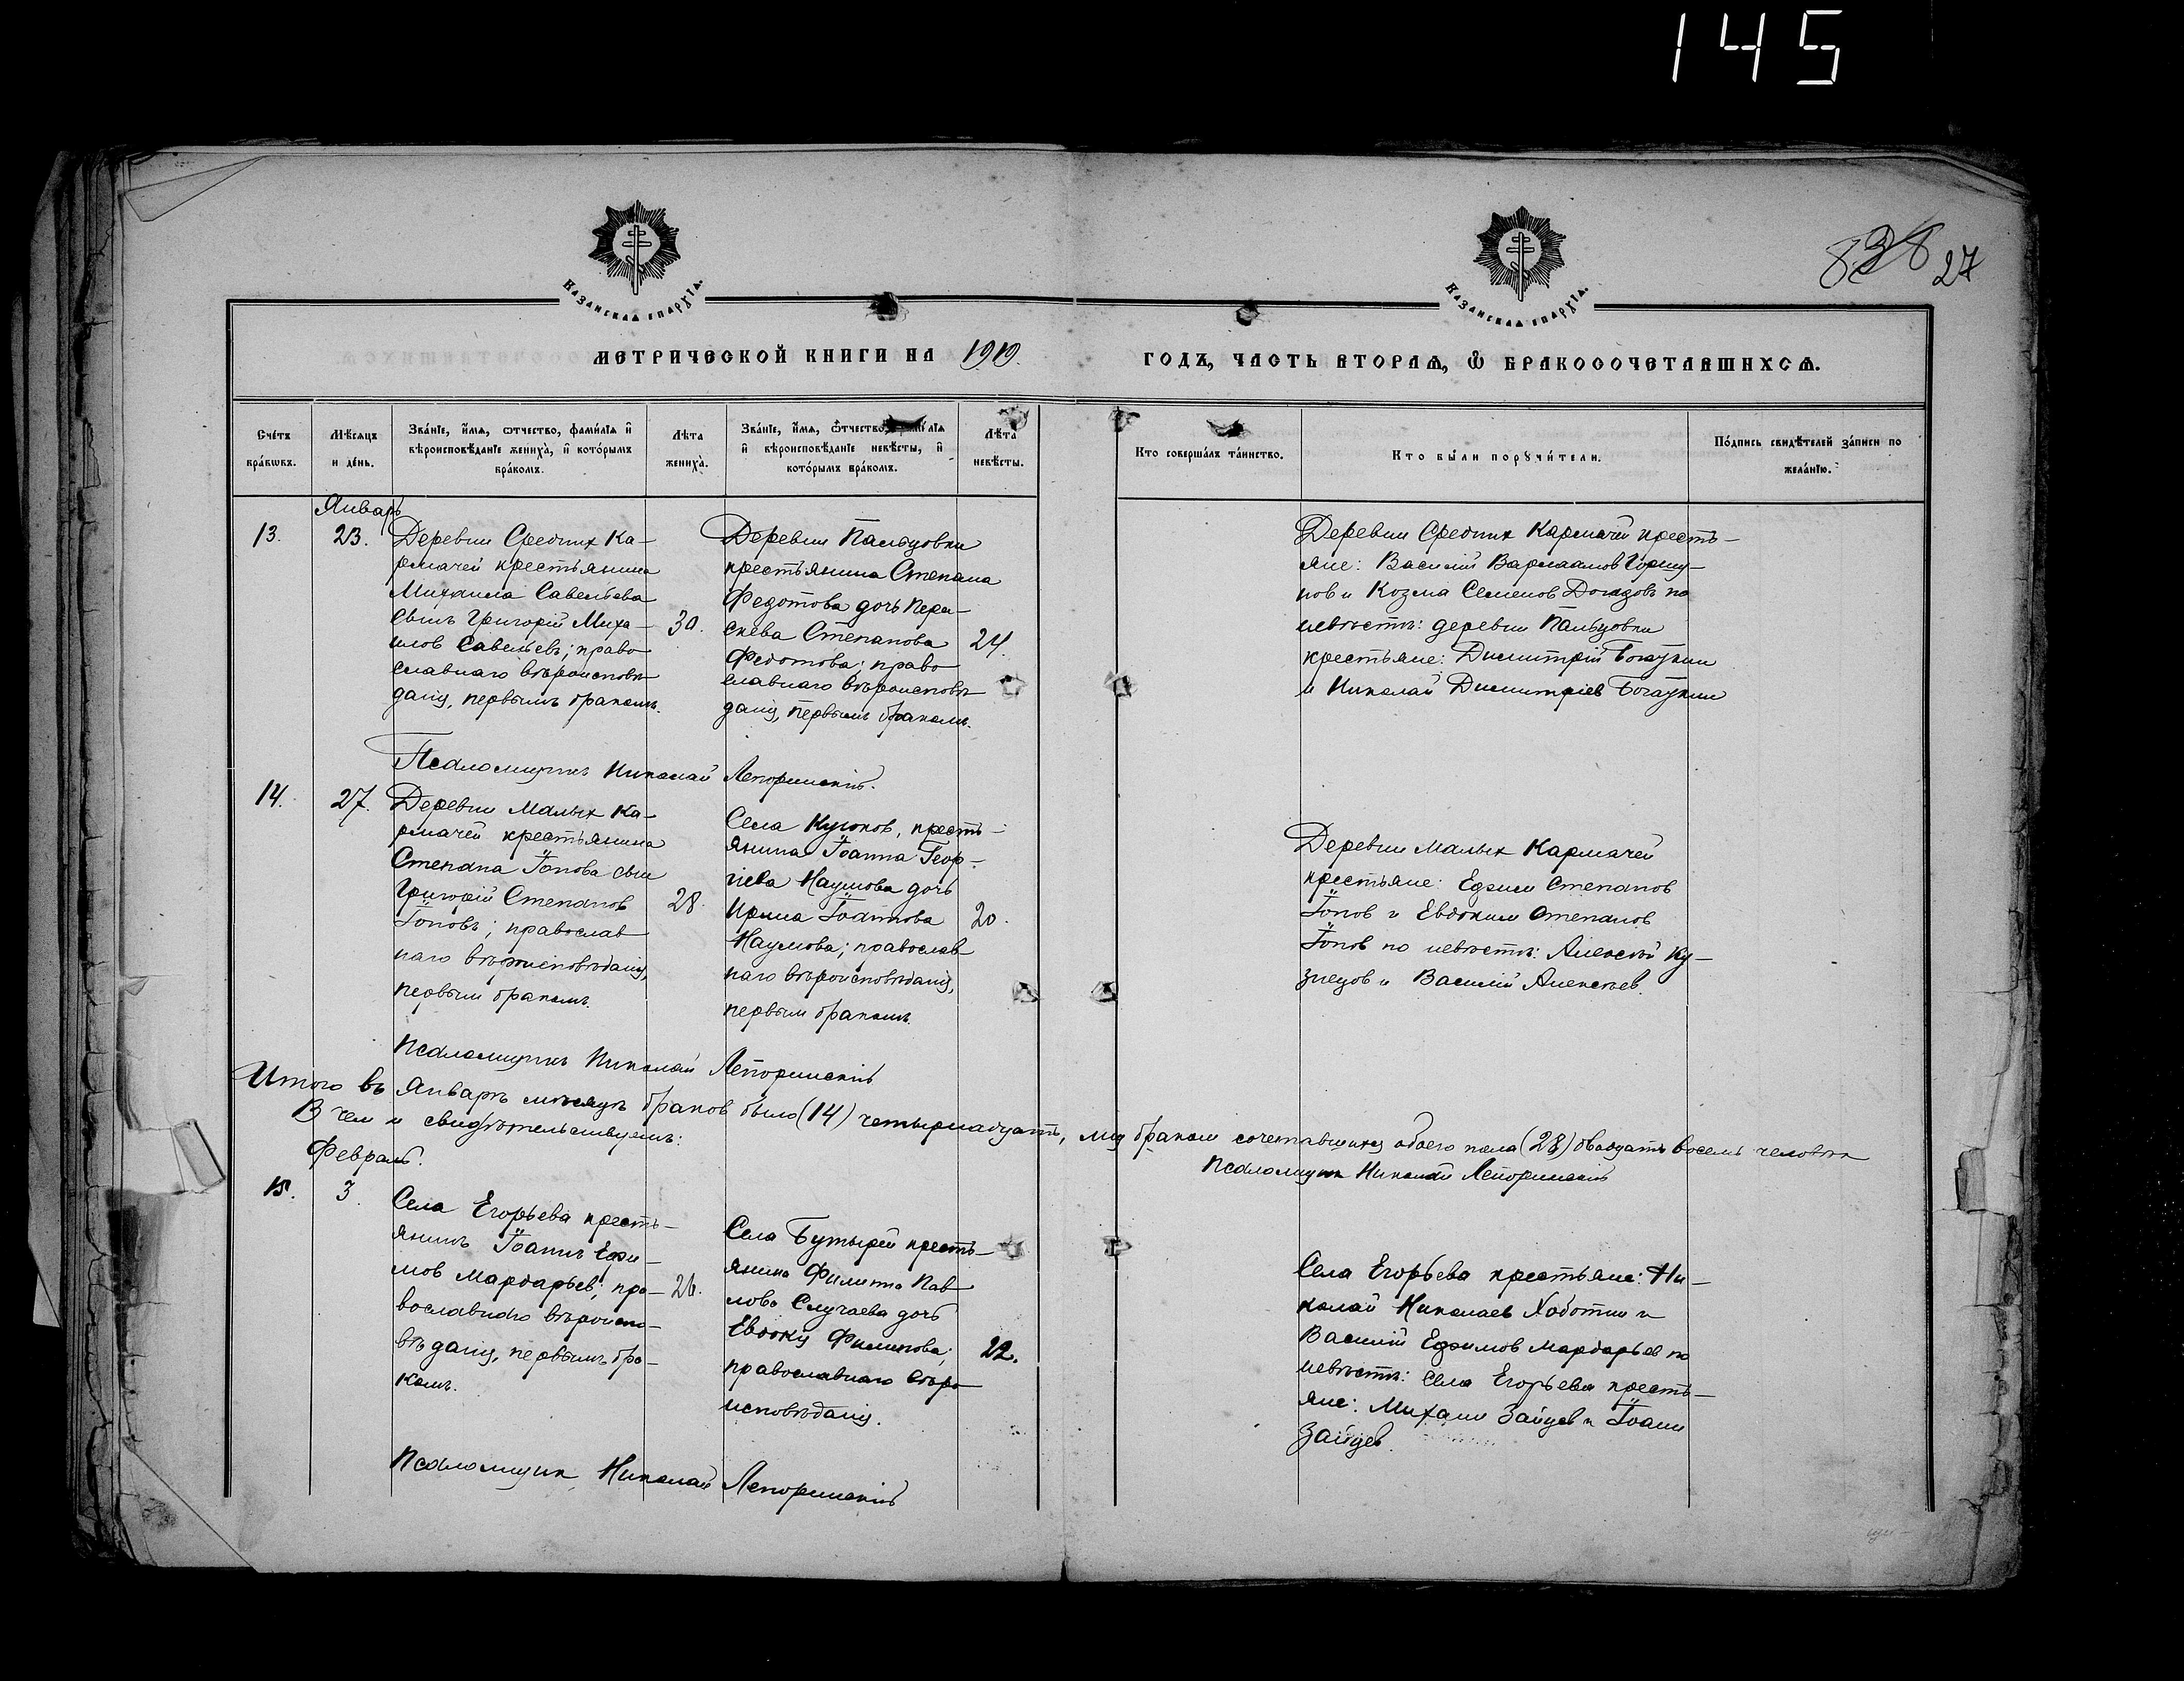 145
838 27
КАЗАНСКАѦ ЕПАРХІѦ.
КАЗАНСКАѦ ЕПАРХІѦ.
МЕТРИЧЕСКОЙ КНИГИ НА 1919.
ГОДЪ, ЧАСТЬ ВТОРАѦ, Ѿ БРАКОСОЧЕТАВШИХСѦ.
Сче́тъ
бра́кѡвъ.
Мѣ́сяцъ
и де́нь.
Зва́нїе, и҆́мѧ, ѻтчество, фами́лїѧ и҆
вѣроисповѣ́данїе жениха̀, и҆ кото́рымъ
бра́комъ.
Лѣ́та
жениха̀.
Зва́нїе, и҆́мѧ, ѻ́тчество, фами́лїѧ
и҆ вѣроисповѣ́данїе невѣ́сты, и҆
кото́рымъ бра́комъ.
Лѣ́та
невѣ́сты.
Кто соверша́лъ та́инство.
Кто бы́ли порꙋчи́тели.
По́дпись свидѣ́телей за́писи по
жела́нїю.
Январь
13.
23.
Деревни Средних Ка-
рмачей крестьянина
Михаила Савельева
сынъ Григорій Миха-
илов Савельевъ; право
славнаго вѣроисповѣ
данія, первымъ бракомъ.
30.
Деревни Пальцовки
крестьянина Степана
Федотова дочь Пара-
скева Степанова
Федотова; право
славнаго вѣроисповѣ
данія, первымъ бракомъ.
24.
Деревни Средних Кармачей кресть-
яне: Василій Варлаамов Горшу-
нов и Козма Семенов Догадовъ по
невѣстѣ: деревни Пальцовки
крестьяне: Димитрій Богаткин
и Николай Димитріев Богаткин
Псаломщикъ Николай Лепоринскій.
14.
27.
Деревни Малых Ка-
рмачей крестьянина
Степана Іонова сын
Григорій Степанов
Іоновъ; православ
наго вѣроисповѣданія,
первым бракомъ.
28.
Села Кугонов, кресть-
янина Іоанна Геор-
гіева Наумова дочь
Ирина Іоаннова
Наумова; православ-
наго вѣроисповѣданія,
первым бракомъ.
20.
Деревни Малых Кармачей
крестьяне: Ефим Степанов
Іонов и Евдоким Степанов
Іонов по невѣстѣ: Алексѣй Ку-
знецов и Василій Алексѣев.
Псаломщикъ Николай Лепоринскій
Итого въ Январѣ мѣсяцѣ браков было (14) четырнадцать, лиц браком сочетавшихся обоего пола (28) двадцать восемь человѣк
В чем и свидѣтельствуемъ:
Псаломщик Николай Лепоринскій
Февраль.
15.
3.
Села Егорьева кресть-
янинъ Іоаннъ Ефи-
мов Мардарьев; пра-
вославнаго вѣроиспо-
вѣданія, первымъ бра-
комъ.
26.
Села Бутырей кресть-
янина Филиппа Пав
лова Случаева дочь
Евдокия Филипова;
православнаго вѣро-
исповѣданія.
22.
Села Егорьева крестьяне: Ни-
колай Николаев Хоботин и
Василій Ефимов Мардарьев по
невѣстѣ: села Егорьева кресть-
яне: Михаил Зайцев и Іоанн
Зайцев.
Псаломщик Николай Лепоринскій